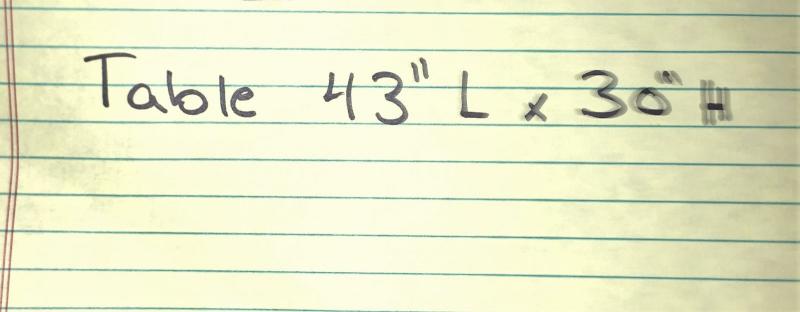 Table 43" L x 30" H